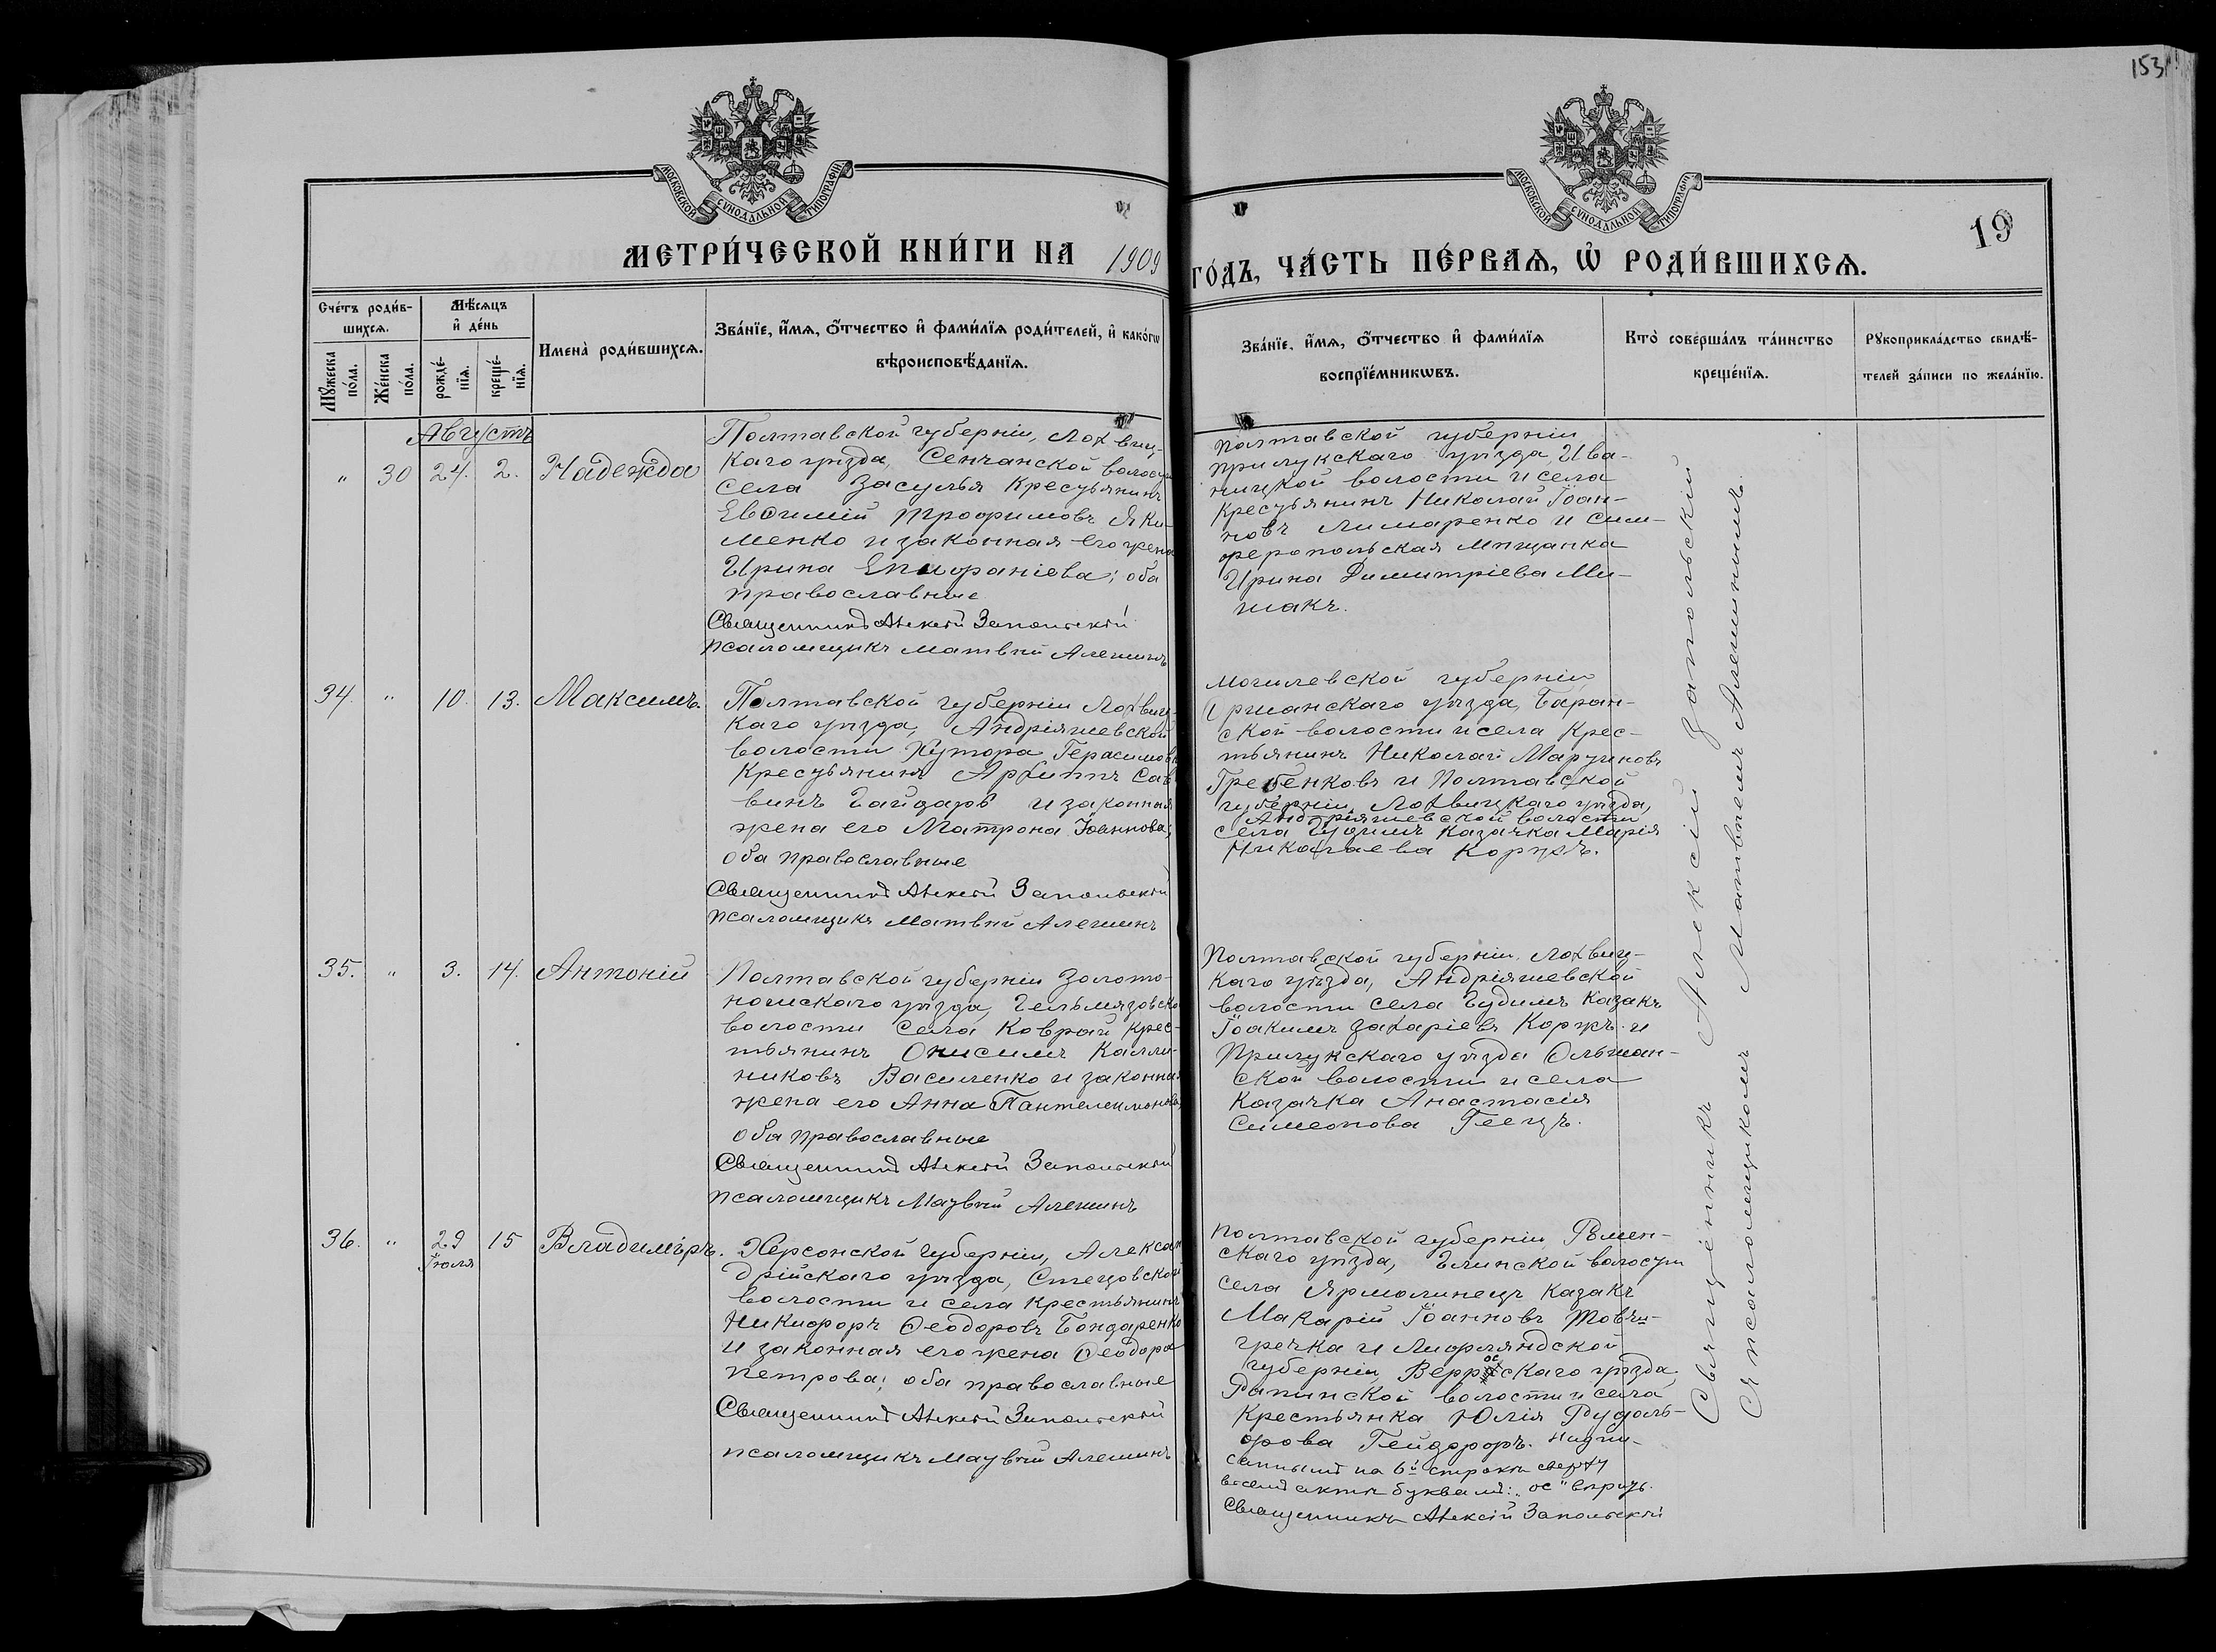 153
МОСКОВСКОЙ СѴНОДАЛЬНОЙ ТИПОГРАФІИ
МОСКОВСКОЙ СѴНОДАЛЬНОЙ ТИПОГРАФІИ
19
МЕТРИ́ЧЕСКОЙ КНИ́ГИ НА 1909 ГО́ДЪ, ЧА́СТЬ ПЕ́РВАѦ, Ѡ РОДИ́ВШИХСѦ.
Сче́тъ роди́в-
шихсѧ.
Мꙋ́жеска
по́ла.
Же́нска
по́ла.
Мѣ́сѧцъ
и҆ де́нь
рожде́-
нїѧ.
креще́-
нїѧ.
Имена̀ роди́вшихсѧ.
Зва́нїе, и҆́мѧ, ѻ҆́тчество и҆ фами́лїѧ роди́телей, и҆ како́гѡ
вѣроисповѣ́данїѧ.
Зва́нїе, и҆́мѧ, ѻ҆́тчество и҆ фами́лїѧ
воспрїе́мникѡвъ.
Кто̀ соверша́лъ та́инство
креще́нїѧ.
Рꙋкоприкла́дство свидѣ́-
телей за́писи по жела́нїю.
Августъ
" 30 24. 2. Надежда
Полтавской губерніи, Лохвиц-
каго уѣзда, Сенчанской волости
села Засулья крестьянинъ
Евѳимій Трофимовъ Яки-
менко и законная его жена
Ирина Епифаніева; оба
православные
Священникъ Алексій Запольскій
Псаломщикъ Матвѣй Алешинъ
Полтавской губерніи
Прилукскаго уѣзда Ива-
ницкой волости и села
крестьянинъ Николай Іоан-
новъ Лимаренко и сим-
феропольская мѣщанка
Ирина Димитріева Ми-
шакъ.
34. " 10. 13. Максимъ.
Полтавской губерніи Лохвиц-
каго уѣзда, Андріяшевской
волости Хутора Герасимовк
крестьянинъ Архиппъ Сав
винъ Гайдаръ и законная
жена его Матрона Іоаннова;
оба православные
Священникъ Алексій Запольскій
Псаломщикъ Матвѣй Алешинъ
Могилевской губерніи
Оршанскаго уѣзда, Баран-
ской волости и села крес-
тьянинъ Николай Мартиновъ
Гребенковъ и Полтавской
губерніи, Лохвицкаго уѣзда,
Андріяшевской волости
села Гудимъ казачка Марія
Николаева Коржъ.
35. " 3. 14. Антоній
Полтавской губерніи Золото-
ношскаго уѣзда, Гельмязовско
волости села Коврай крес-
тьянинъ Онисимъ Калли-
никовъ Василенко и законная
жена его Анна Пантелеимонова,
оба православные
Священникъ Алексій Запольскій
Псаломщикъ Матвѣй Алешинъ
Полтавской губерніи, Лохвиц-
каго уѣзда, Андріяшевской
волости села Гудимъ казакъ
Іоакимъ Захаріевъ Коржъ и
Прилукскаго уѣзда Ольшан-
ской волости и села
казачка Анастасія
Симеонова Геецъ.
36. " 29 Іюля 15 Владиміръ.
Херсонской губерніи, Алексан
дрійскаго уѣзда, Стецовской
волости и села крестьянинъ
Никифоръ Ѳеодоровъ Бондаренко
и законная его жена Ѳеодора
Петрова; оба православные
Священникъ Алексій Запольскій
псаломщикъ Матвѣй Алешинъ
Полтавской губерніи Ромен-
скаго уѣзда, Глинской волости
села Ярмолинецъ казакъ
Макарій Іоанновъ Товчи-
гречка и Лифляндской
губерніи, Верроскаго уѣзда
Рапинской волости и села
крестьянка Юлія Рудоль-
фова Гейдорфъ. Надпи-
саннымъ на 6й строкѣ сверху
восемъ актѣ буквамъ: „ос" вѣрить.
Священникъ Алексій Запольскій
Священникъ Алексій Запольскій
съ псаломщикомъ Матвѣемъ Алешинымъ.